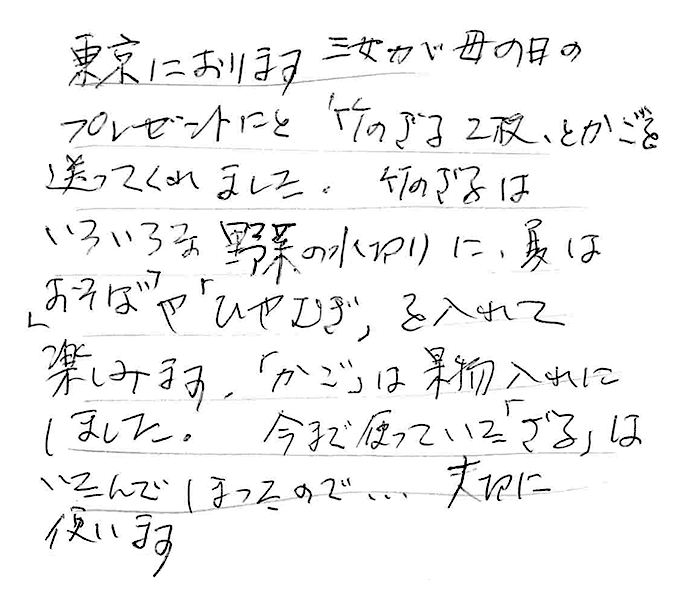 東京におります 三女が母の日の
プレゼントにと 竹のざる 2枚、とかごを
送ってくれました. 竹のざるは
いろいろな 野菜の水切りに、夏は
「おそば」や「ひやむぎ」を入れて
楽しみます.「かご」は果物入れに
しました。 今まで使っていた「ざる」は
いたんでしまったので... 大切に
使います